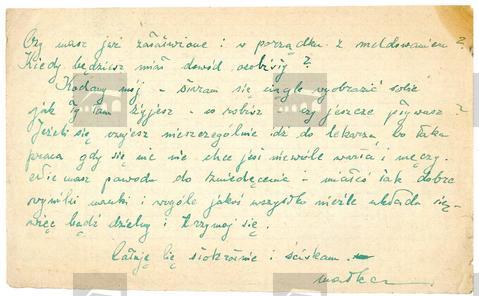 Czy masz już załatwione i w porządku z meldowaniem?
Kiedy będziesz miał dowód osobisty?
Kochany mój – staram się ciągle wyobrazić sobie
jak Ty tam żyjesz – co robisz – czy jeszcze pływasz?
Jeżeli się czujesz nieszczególnie idź do lekarza, bo taka
praca gdy się nic nie chce jest niewiele warta i męczy.
Nie masz powodu do zniechęcenia – miałeś tak dobre
wyniki nauki i wogóle jakoś wszystko nieźle układa się –
więc bądź dzielny i trzymaj się.
Całuję Cię stokrotnie i ściskam. –
matka